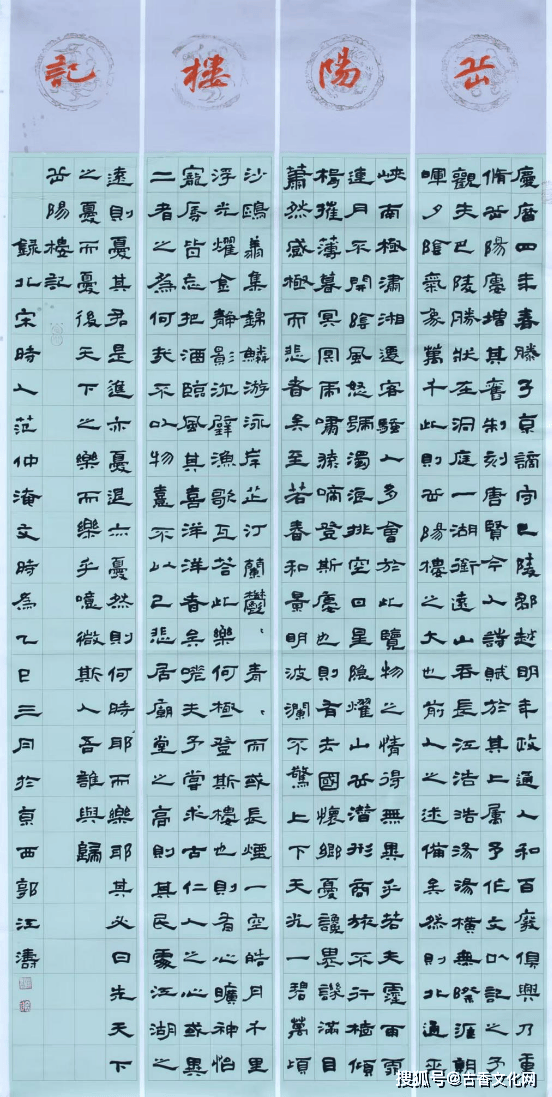 岳陽樓記
慶曆四年春滕子京謫守巴陵郡越明年政通人和百廢俱興乃重
脩岳陽樓增其舊制刻唐賢今人詩賦於其上屬予作文以記之予
觀夫巴陵勝狀在洞庭一湖銜遠山吞長江浩浩湯湯橫無際涯朝
暉夕陰氣象萬千此則岳陽樓之大也前人之述備矣然則北通巫
峽南極瀟湘遷客騷人多會於此覽物之情得無異乎若夫霪雨霏
連月不開陰風怒號濁浪排空日星隱耀山岳潛形商旅不行檣傾
楫摧薄暮冥冥虎嘯猿啼登斯樓也則有去國懷鄉憂讒畏譏滿目
蕭然感極而悲者矣至若春和景明波瀾不驚上下天光一碧萬頃
沙鷗翔集錦鱗游泳岸芷汀蘭鬱、青、而或長煙一空皓月千里
浮光耀金靜影沉璧漁歌互荅此樂何極登斯樓也則有心曠神怡
寵辱皆忘把酒臨風其喜洋洋者矣嗟夫予嘗求古仁人之心或異
二者之為何哉不以物喜不以己悲居廟堂之高則其民處江湖之
遠則憂其君是進亦憂退亦憂然則何時耶而樂耶其必曰先天下
之憂而憂後天下之樂而樂乎噫微斯人吾誰與歸
岳陽樓記
錄北宋時人范仲淹文時為乙巳三月於京西郭江濤
搜狐号@古香文化网